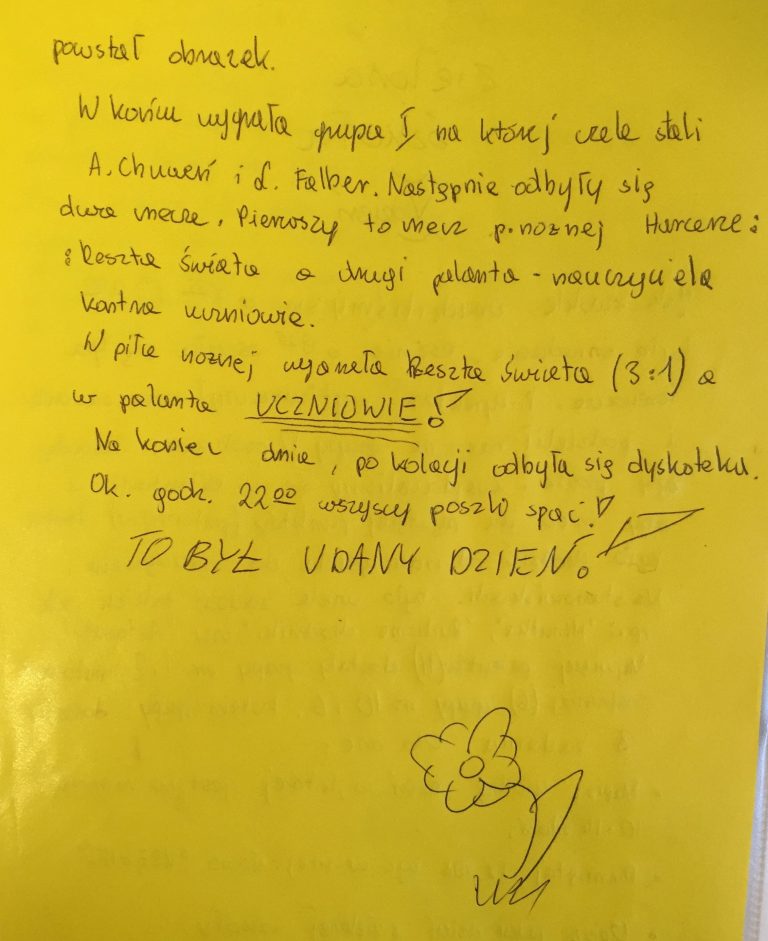 powstał obrazek.
W końcu wygrała grupa I na której czele stali
A. Chuweń i Ł. Falber. Następnie odbyły się
dwa mecze. Pierwszy to mecz p. nożnej Harcerze :
: Reszta świata a drugi palanta - nauczyciele
kontra uczniowie.
W piłce nożnej wygrała Reszta Świata (3:1) a
w palanta UCZNIOWIE!
Na koniec dnia, po kolacji odbyła się dyskoteka.
Ok. godz. 22 00 wszyscy poszło spać!
TO BYŁ UDANY DZIEŃ!